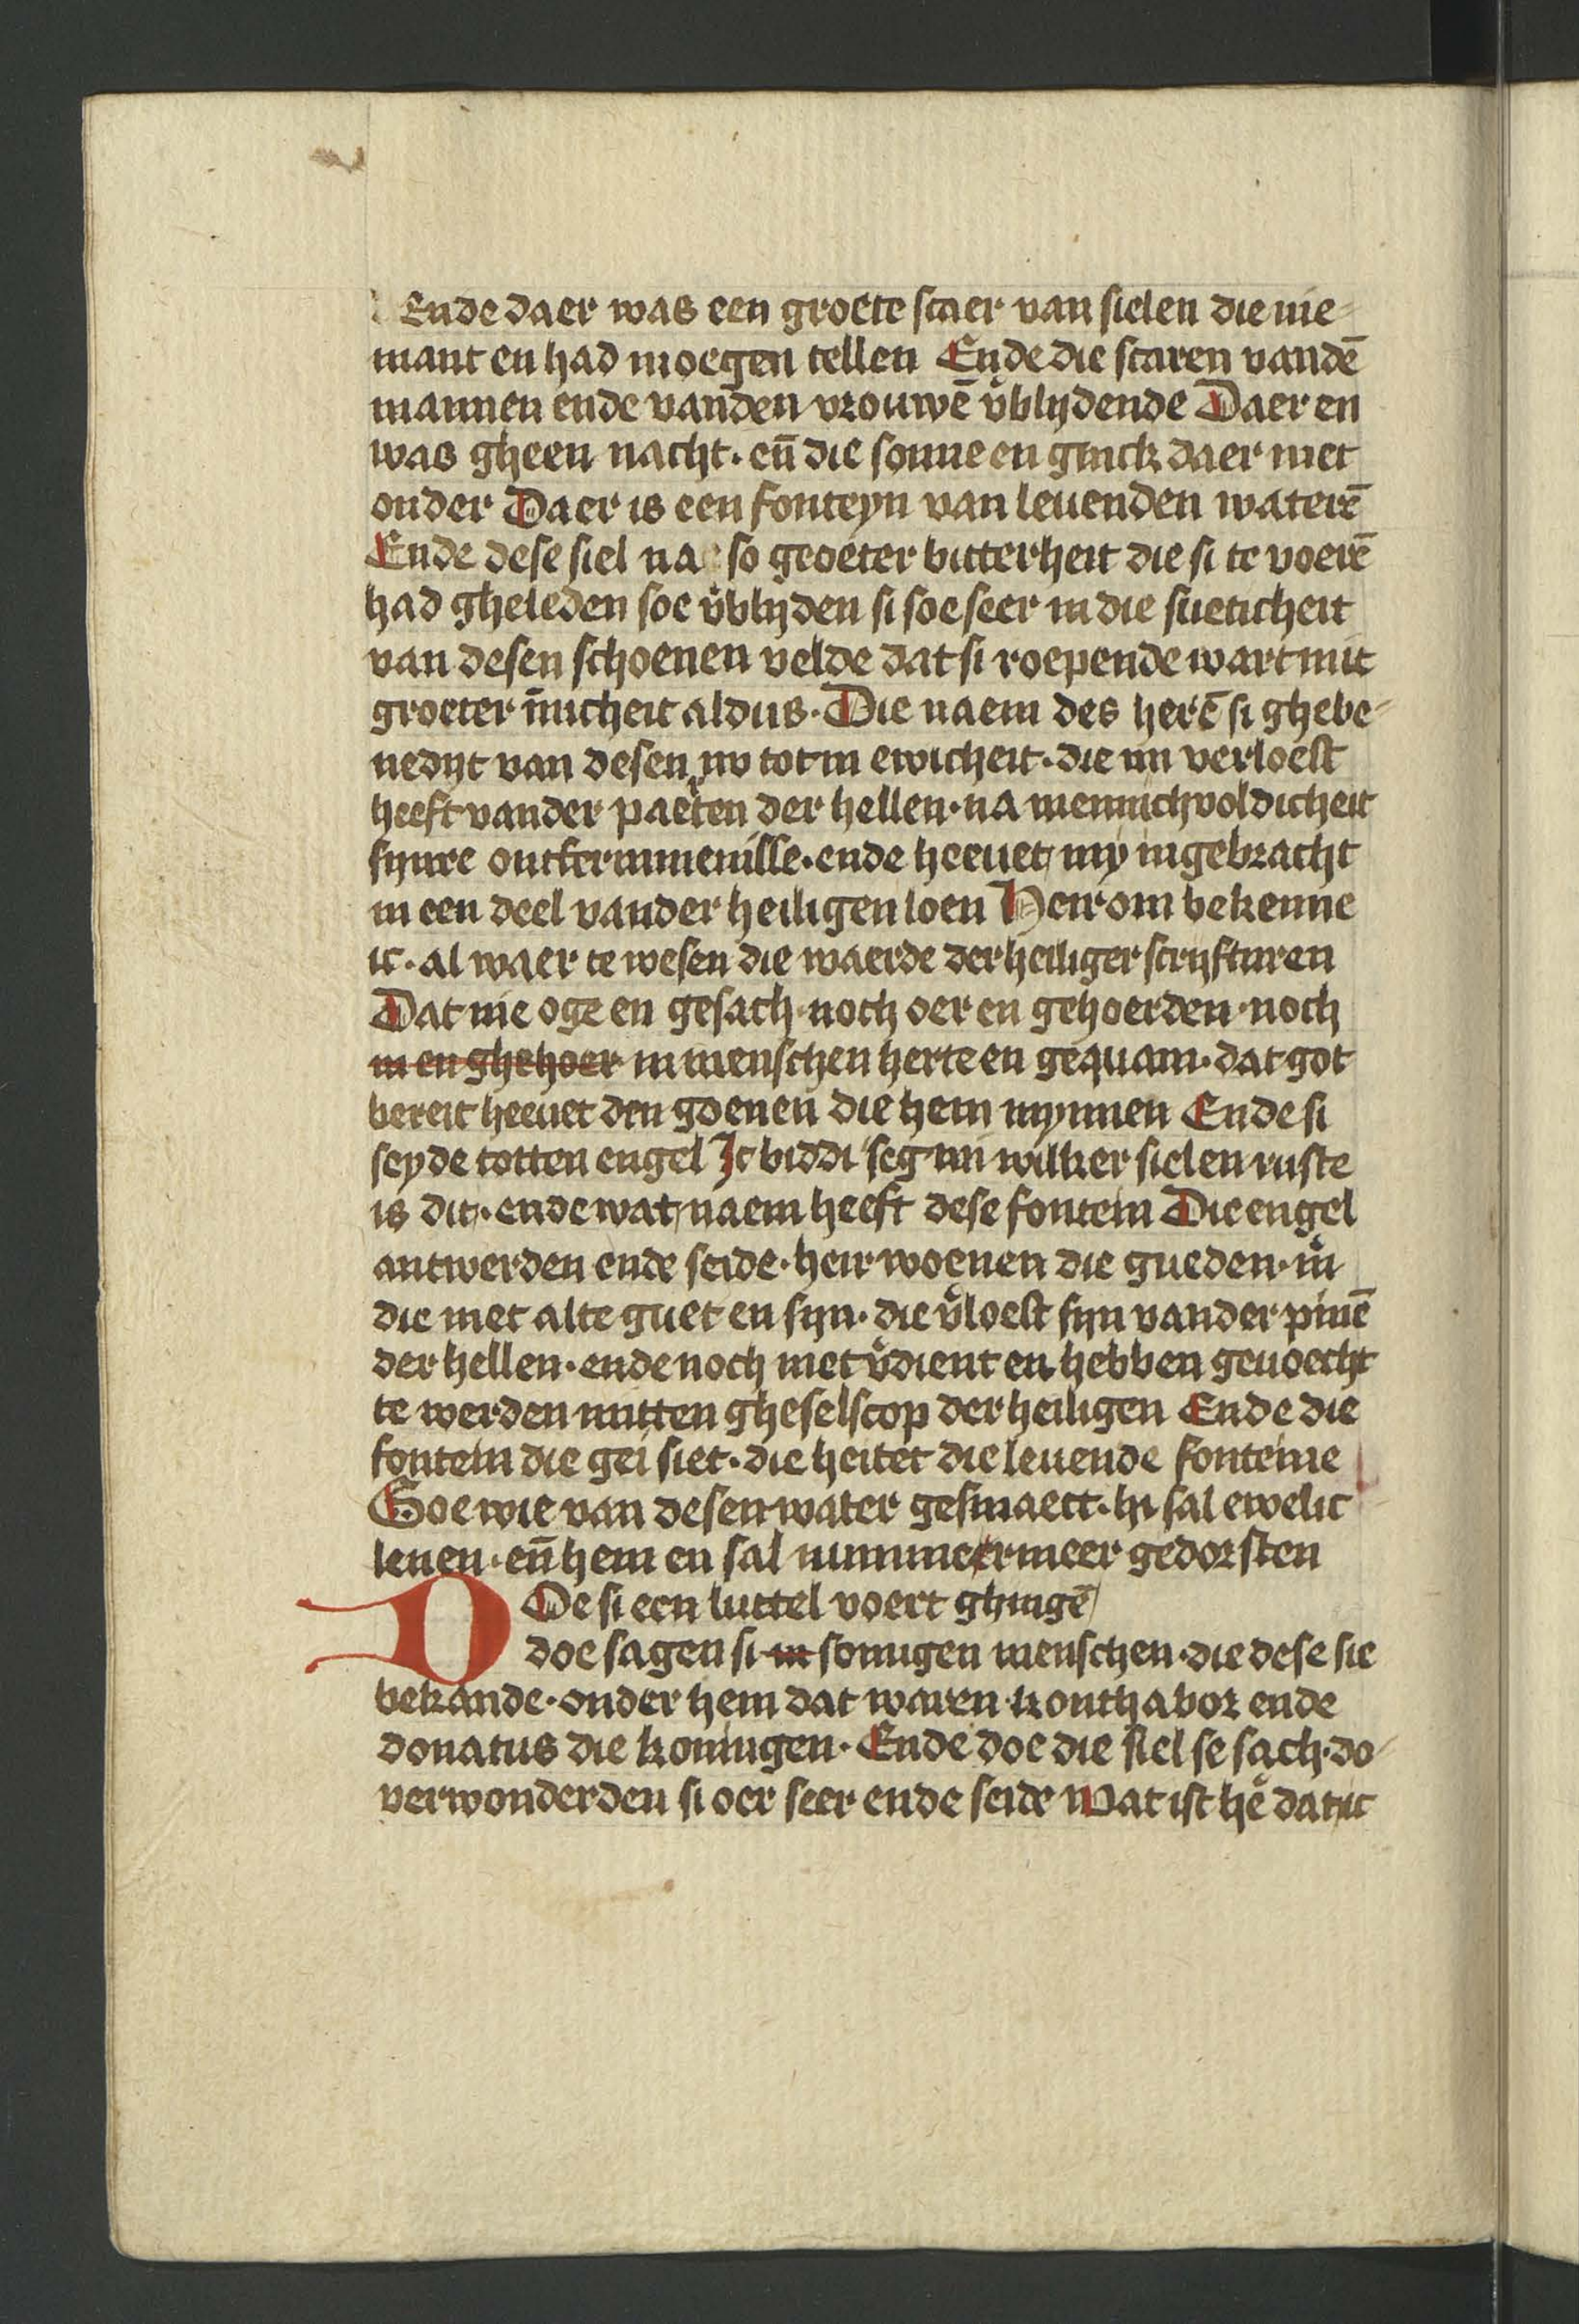 Ende daer was een groete scaer van sielen die nie-
mant en had moegen tellen Ende die scaren vandē
mannen ende vanden vrouwē v̉blijdende Daer en
was gheen nacht · en̄ die sonne en ginck daer niet
onder Daer is een fonteyn van leuenden waterē
Ende dese siel na so groeter bitterheit die si te voerē
had gheleden soe v̉blijden si soe seer in die sueticheit
van desen schoenen velde dat si roepende wart mit
groeter īnicheit aldus · Die naem des herē si ghebe-
nedijt van desen nv tot in ewicheit · die mi verloest
heeft vander paerten der hellen · na mennichvoldicheit
sijnre ontfermmenisse · ende heeuet my ingebracht
in een deel vander heiligen loen Heir om bekenne
ic · al waer te wesen die waerde der heiliger scrifturen
Dat nie oge en gesach · noch oer en gehoerden · noch
in en ghehoer in menschen herte en gequam · dat got
bereit heeuet den goenen die hem mynnen Ende si
seyde totten engel Ic biddi seg mi wilker sielen ruste
is dit · ende wat naem heeft dese fontein Die engel
antwerden ende seide · heir woenen die gueden · m̉
die niet alte guet en sijn · die v̉loest sijn vander pinē
der hellen · ende noch niet v̉dient en hebben geuoecht
te werden mitten gheselscop der heiligen Ende die
fontein die gei siet · die heitet die leuende fonteine
Soe wie van desen water gesmaect · hi sal ewelic
leuen · en̄ hem en sal nummermeer gedorsten
DOe si een luttel voert ghingē
doe sagen si in somigen menschen · die dese sie
bekande · onder hem dat waren konthabor ende
donatus die koningen · Ende doe die siel se sach · do-
verwonderden si oer seer ende seide Wat ist hẻ dat ic